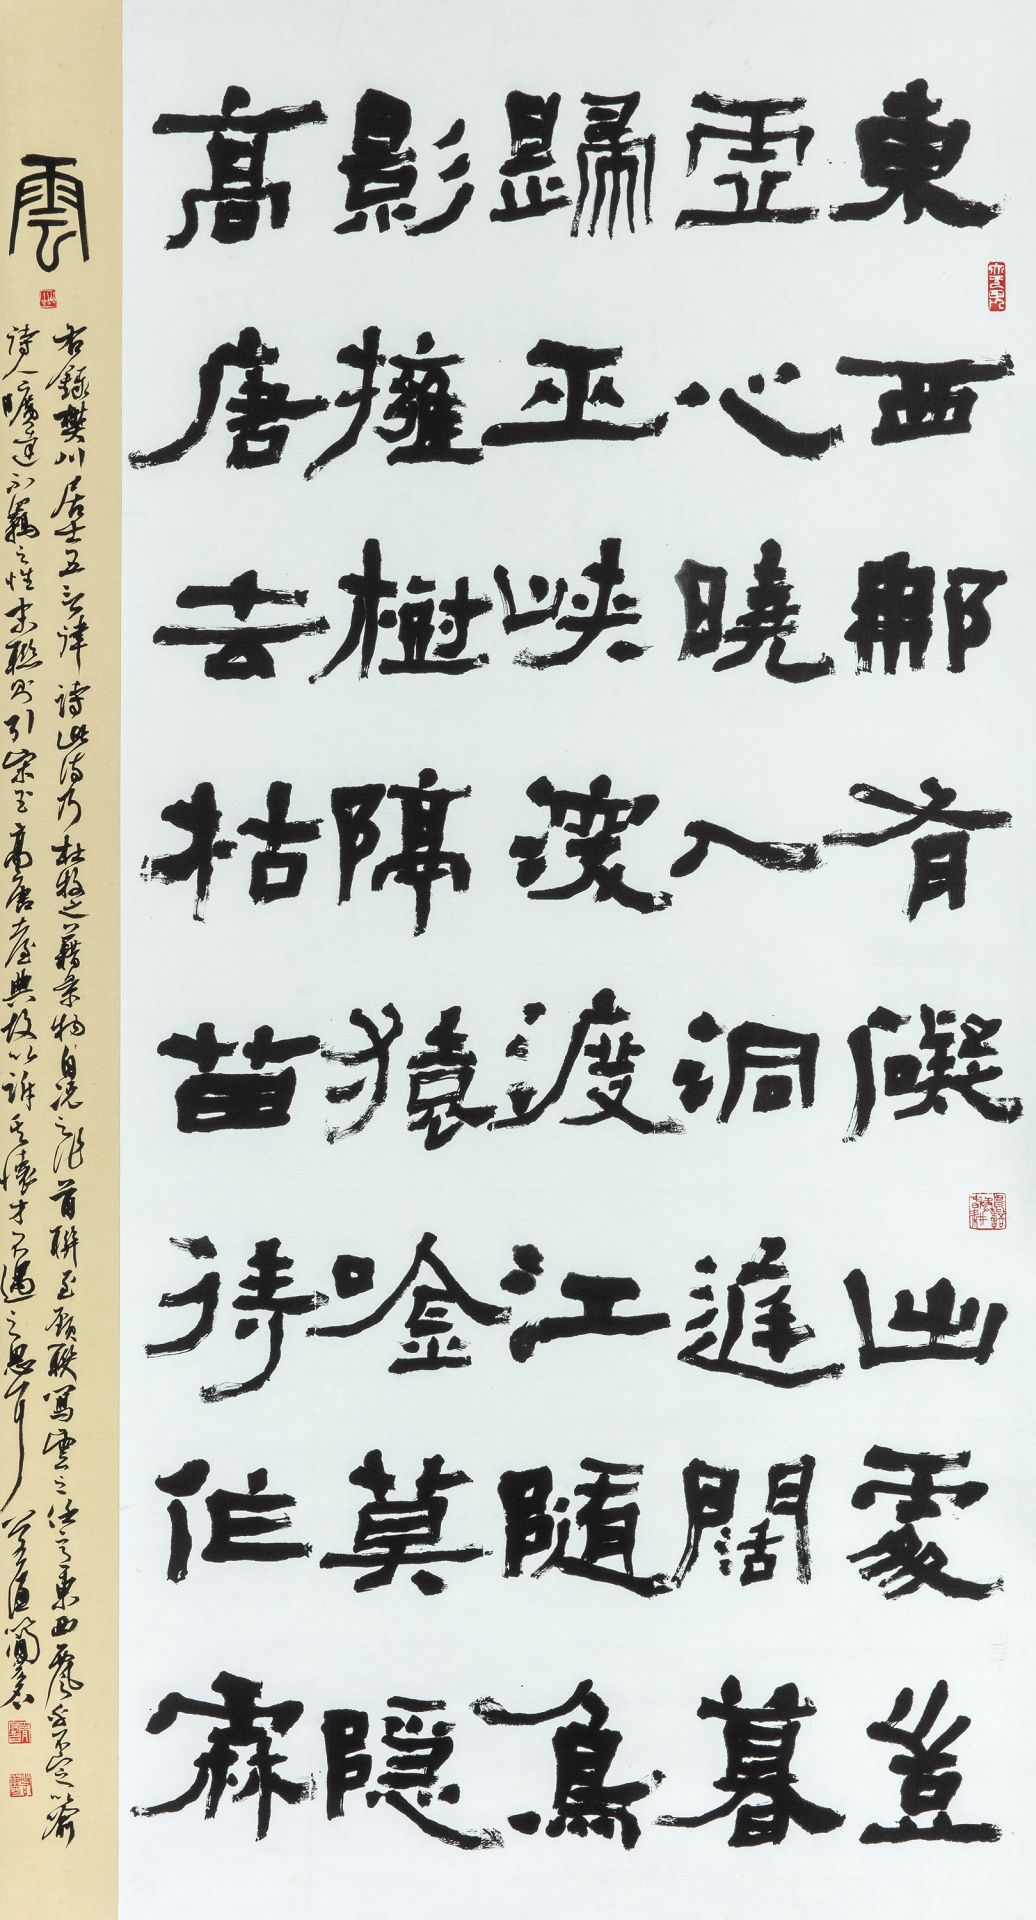 東西那有礙出處豈
虛心曉入洞庭闊暮
歸巫峽深渡江隨鳥
影擁樹隔猿吟莫隱
高唐去枯苗待作霖
雲
右錄樊川居士五言律詩此詩乃杜牧之藉景物自況之作首聯至頸聯寫雲之任意東西飄忽不定以喻
詩人曠達不羈之性末聯則引宋玉高唐臺典故以訴其懷才不遇之思耳